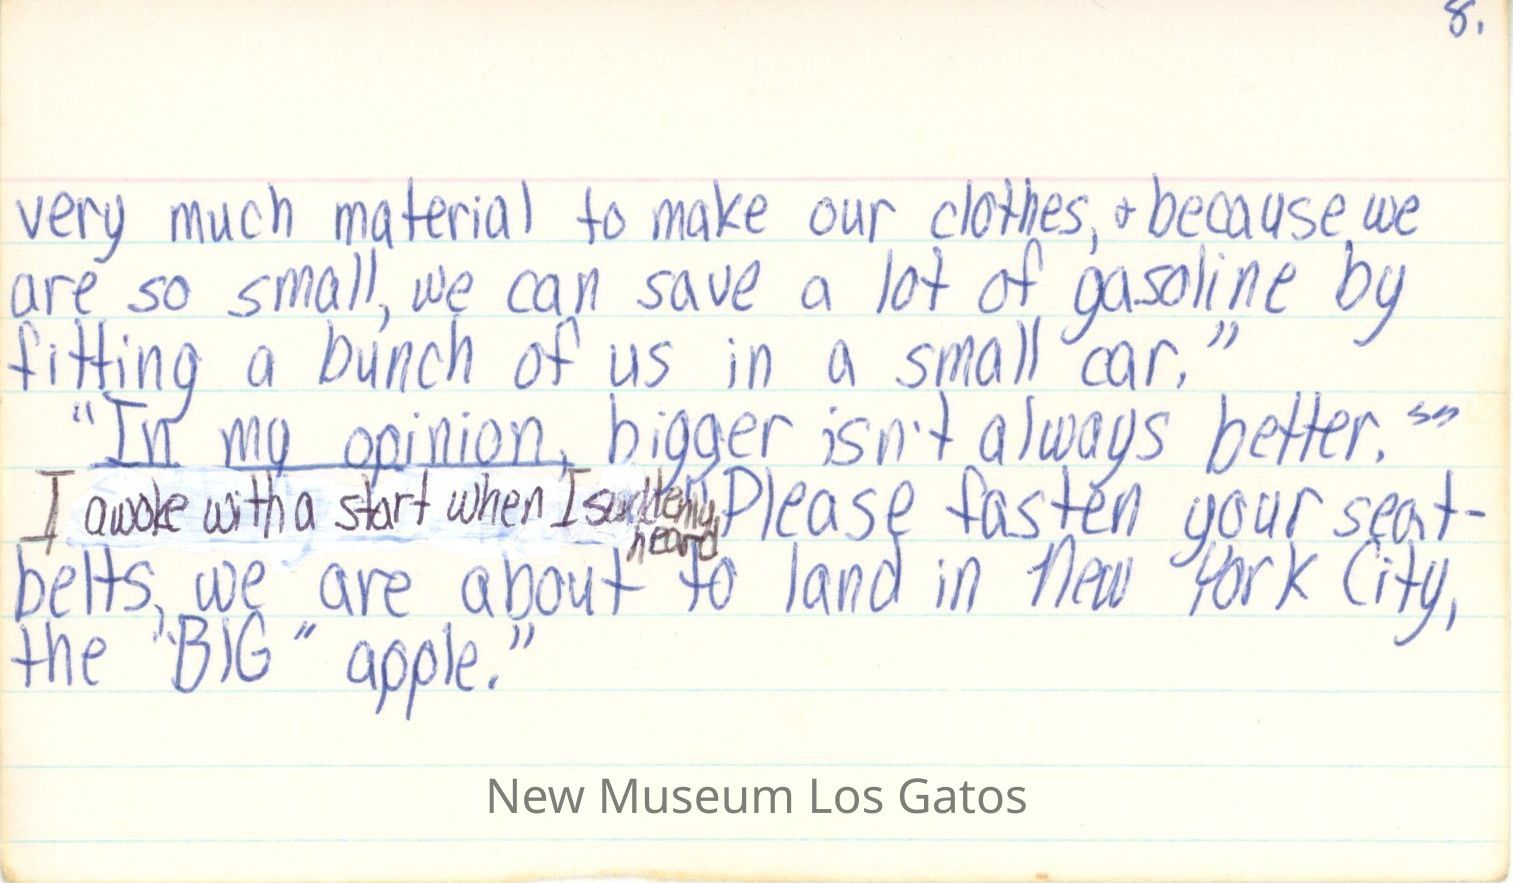 8.
very much material to make our clothes, & because we
are so small, we can save a lot of gasoline by
fitting a bunch of us in a small car."
"In my opinion, bigger isn't always better.""
I awoke with a start when I suddenly heard "Please fasten your seat-
belts, we are about to land in New York City,
the "BIG" apple."
New Museum Los Gatos